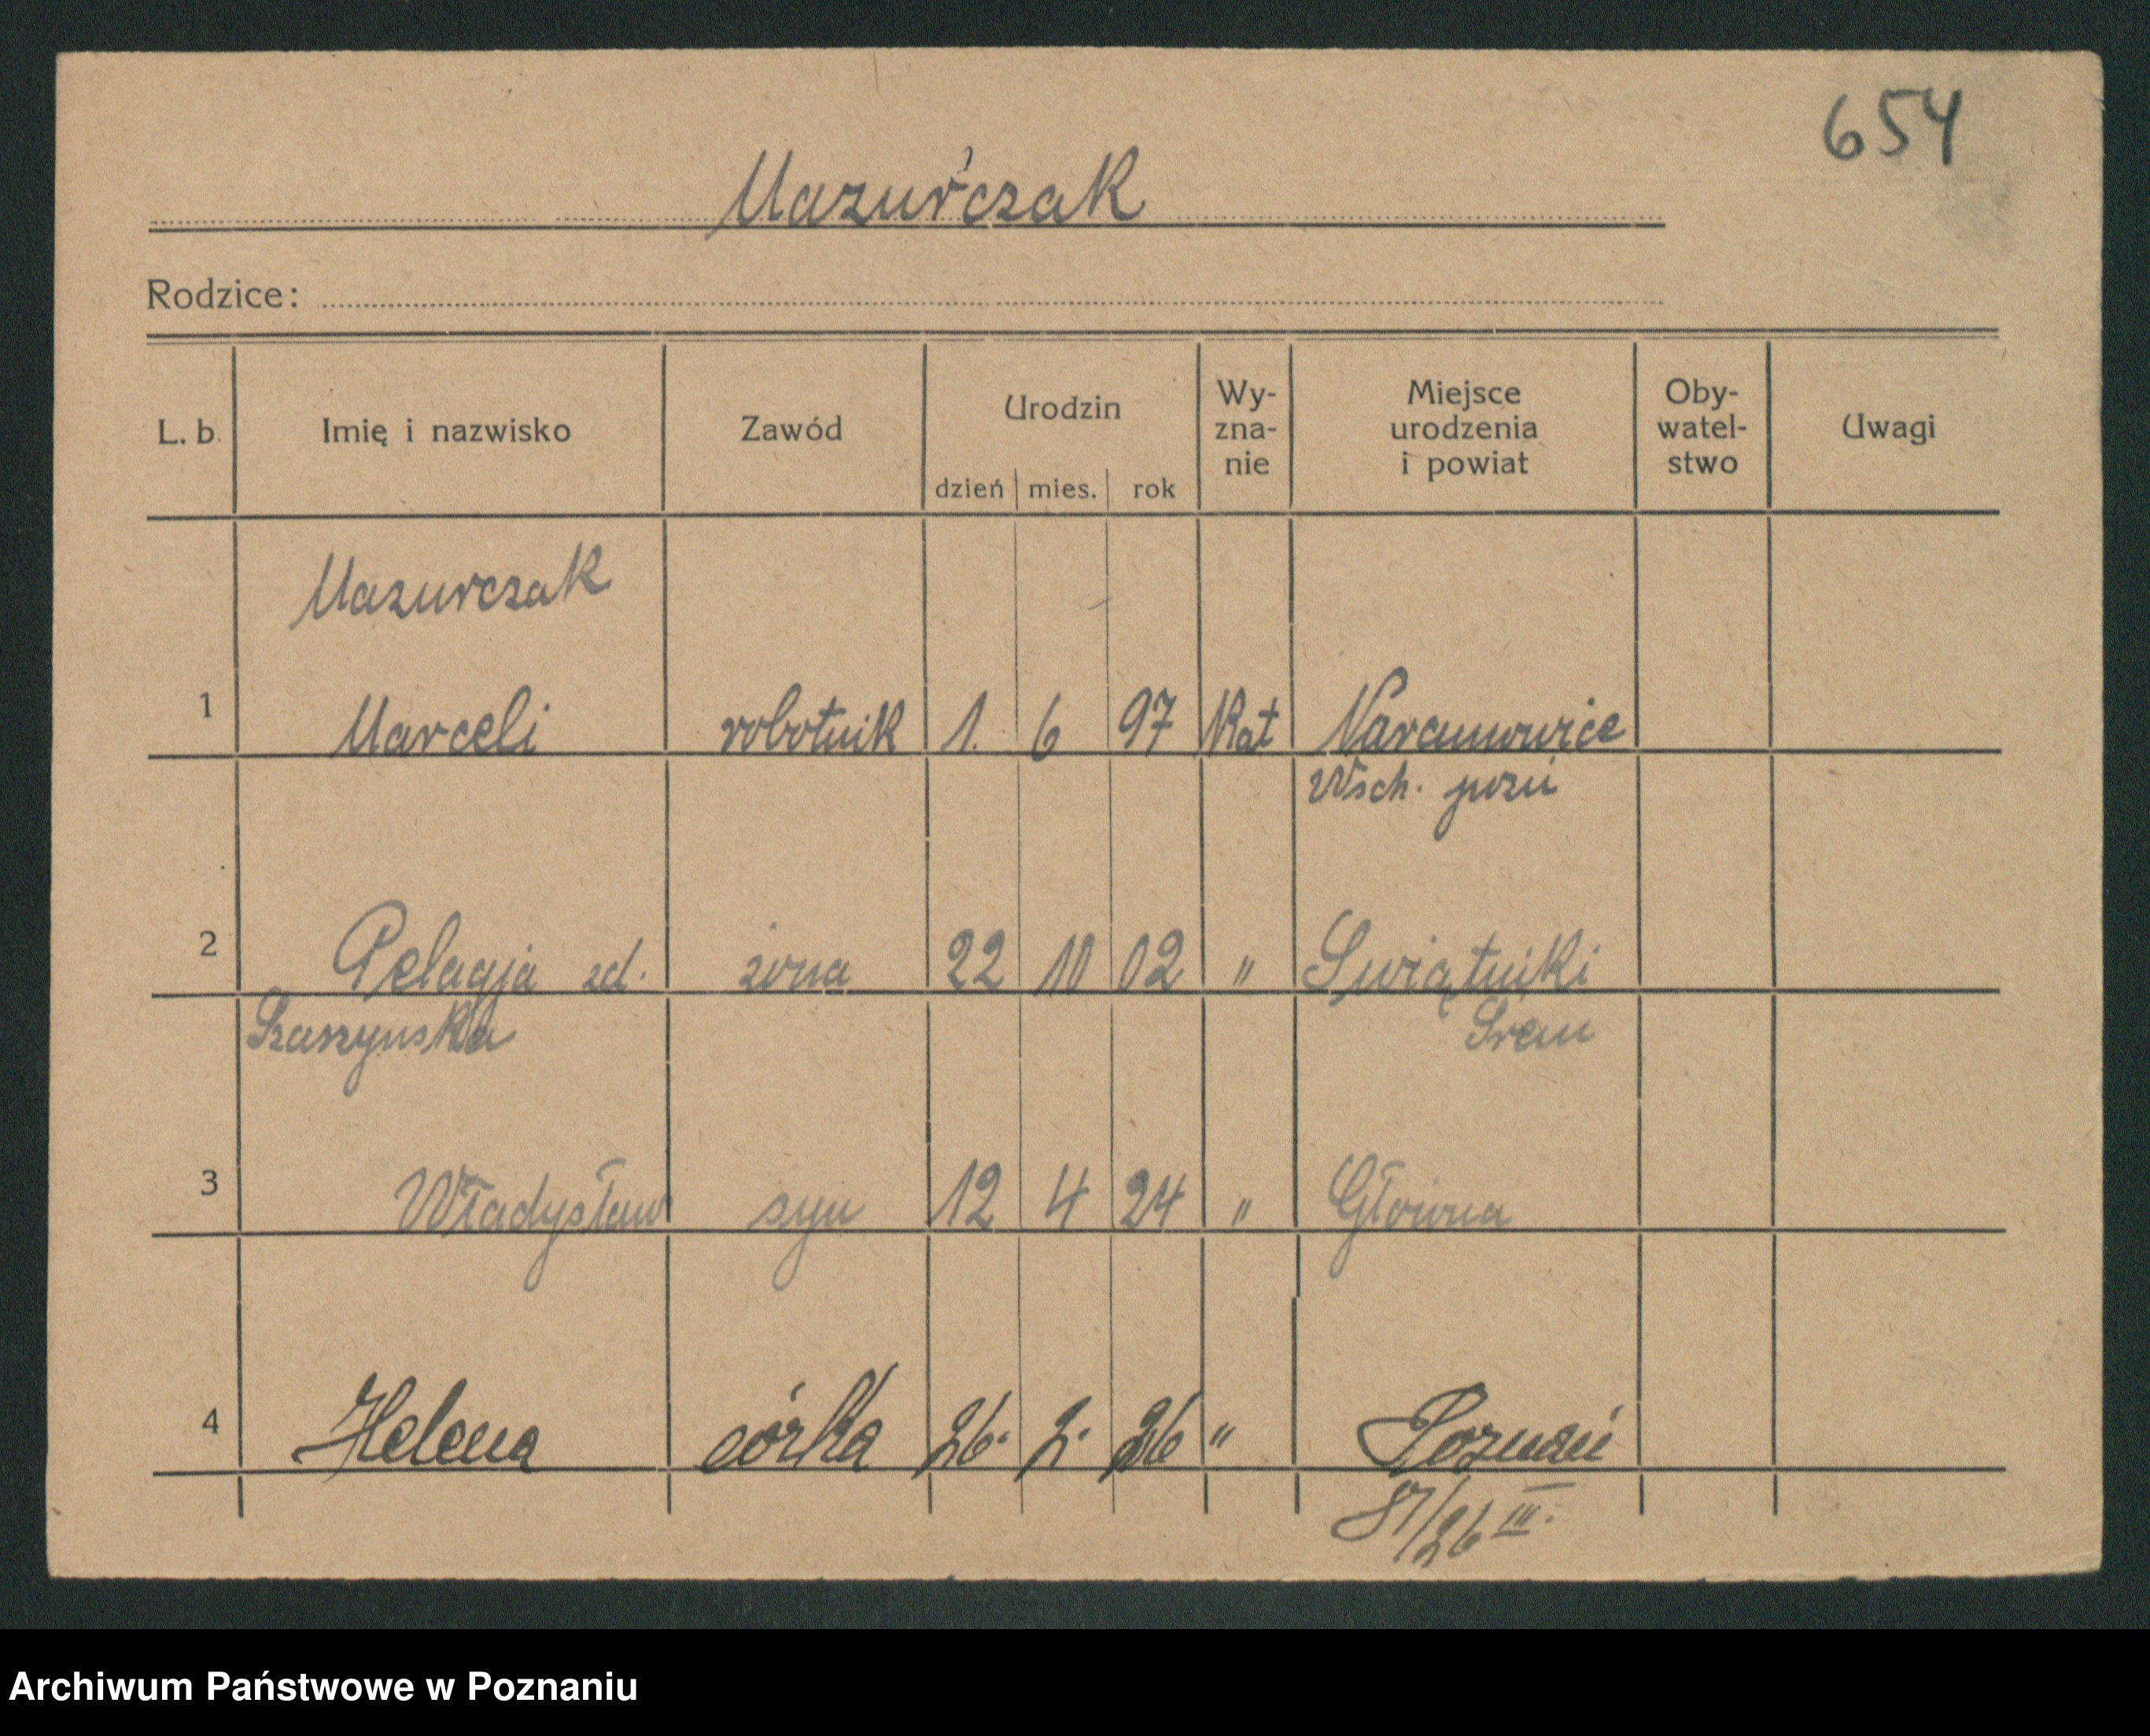 654
Mazurczak
Rodzice:
L. b. Imię i nazwisko Zawód Urodzin dzień mies. rok Wy-zna-nie Miejsce urodzenia i powiat Oby-watel-stwo Uwagi
Mazurczak
1 Marceli robotnik 1. 6 97 Kat Naramowice
Wsch. pozń
2 Pelagja zd. żona 22 10 02 " Swiątniki
Szaszynska Srem
3 Władysław syn 12 4 24 " Główna
4 Helena córka 26. 2. 26 " Poznań
/26 III.
Archiwum Państwowe w Poznaniu